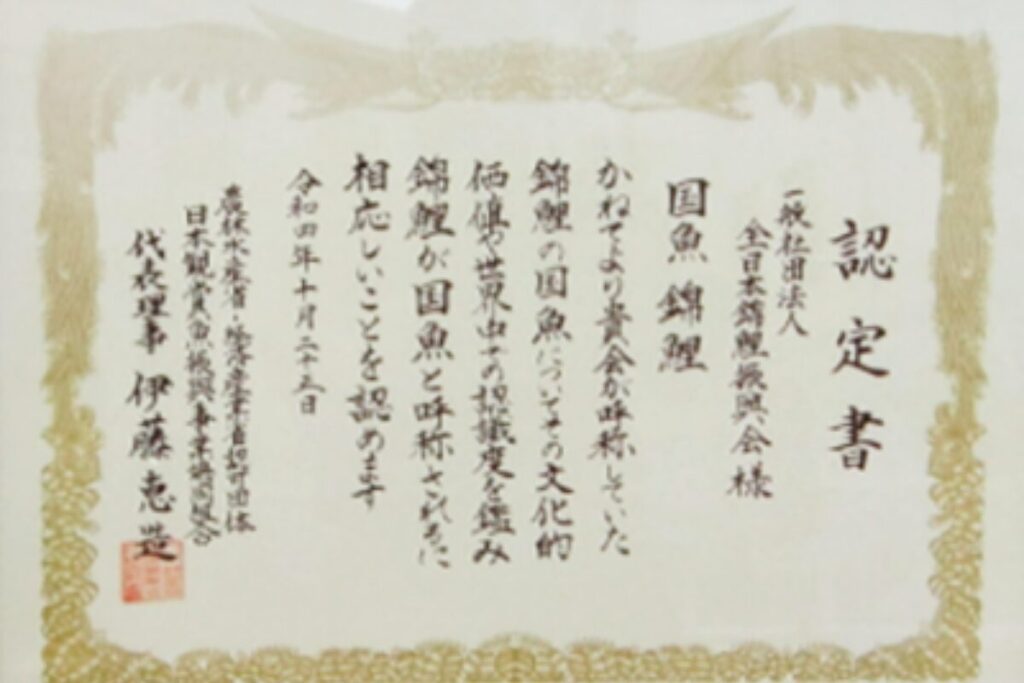 認定書
一般社団法人
全日本錦鯉振興会様
国魚 錦鯉
かねてより貴会が呼称していた
錦鯉の国魚についてその文化的
価値や世界中での認識度を鑑み
錦鯉が国魚と呼称されるに
相応しいことを認めます
令和四年十月二十五日
農林水産省・経済産業省認可団体
日本観賞魚振興事業協同組合
代表理事 伊藤恵造